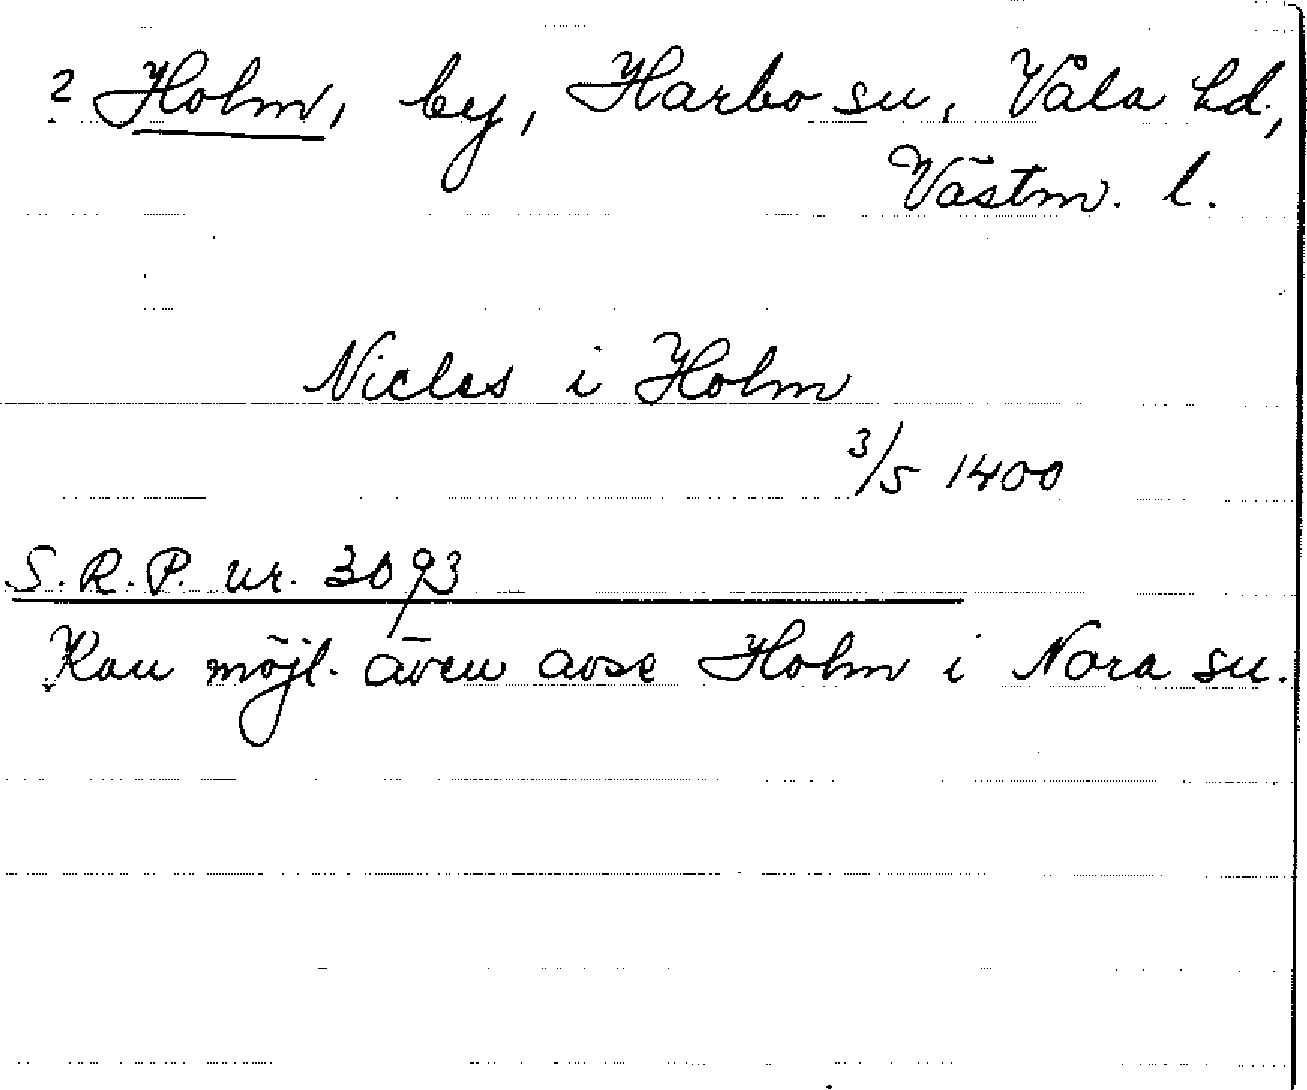 ? Holm, by, Harbo sn, Våla hd,
Västm. l.
Niclas i Holm
3/5 1400
S.R.P. nr. 3093
Kan möjl. även avse Holm i Nora sn.